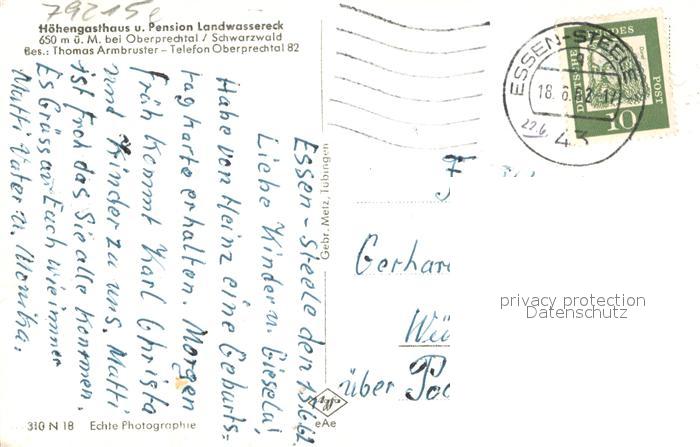 79215e
Höhengasthaus u. Pension Landwassereck
650 m ü. M. bei Oberprechtal / Schwarzwald
Bes.: Thomas Armbruster – Telefon Oberprechtal 82
Essen-Steele den 15.6.62
Liebe Kinder u. Gisela!
Habe von Heinz eine Geburts=
tagkarte erhalten. Morgen
früh kommt Karl Christa
und Kinder zu uns. Mutti
ist froh das Sie alle kommen.
Es Grüssen Euch wie immer
Mutti Vater u. Monika.
Gebr. Metz, Tübingen
ESSEN-STEELE
18.6.62-17
43
22.6.
DEUTSCHE BUNDESPOST
10
F
Gerhar
Wü
über Po
privacy protection
Datenschutz
Agfa
eAe
310 N 18 Echte Photographie